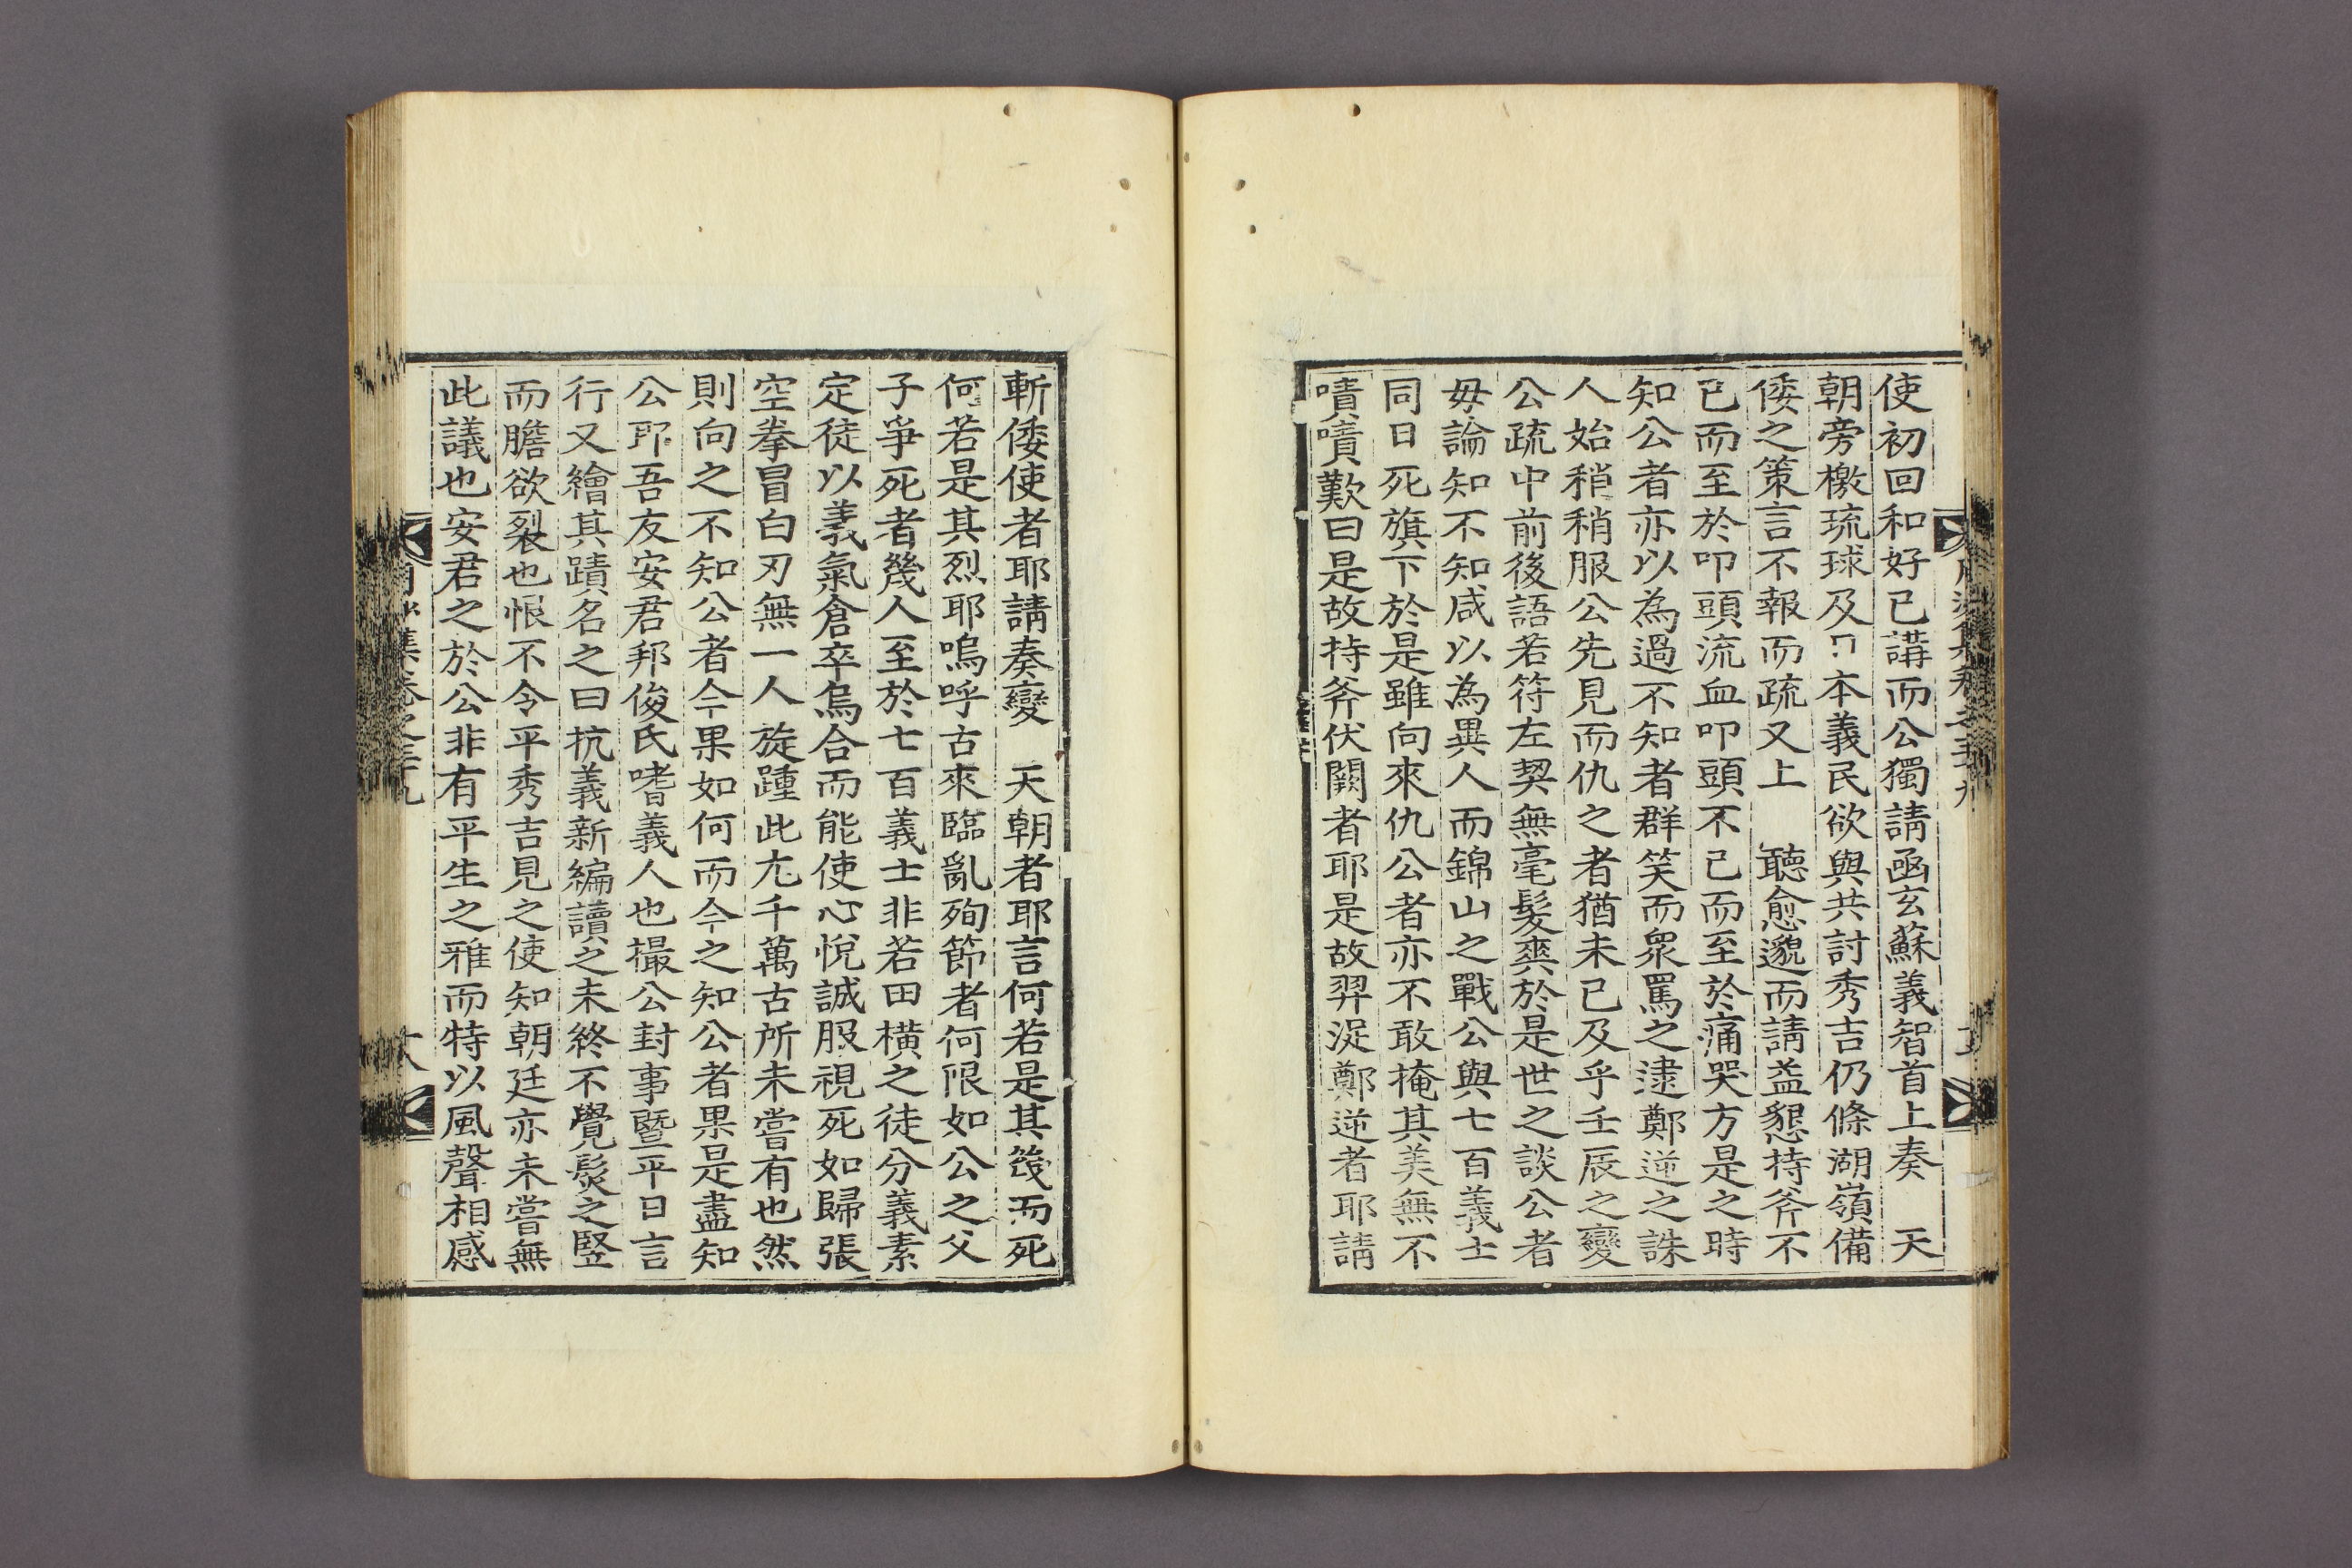 使初回和好已講而公獨請函玄蘇義智首上奏　天
朝旁檄琉球及日本義民欲與共討秀吉仍條湖嶺備
倭之策言不報而疏又上　聽愈邈而請益懇持斧不
已而至於叩頭流血叩頭不已而至於痛哭方是之時
知公者亦以為過不知者群笑而衆罵之逮鄭逆之誅
人始稍稍服公先見而仇之者猶未已及乎壬辰之變
公疏中前後語若符左契無毫髮爽於是世之談公者
毋論知不知咸以為異人而錦山之戰公與七百義士
同日死旗下於是雖向來仇公者亦不敢掩其美無不
嘖嘖歎曰是故持斧伏闕者耶是故羿浞鄭逆者耶請
斬倭使者耶請奏變　天朝者耶言何若是其筏而死
何若是其烈耶嗚呼古來臨亂殉節者何限如公之父
子爭死者幾人至於七百義士非若田橫之徒分義素
定徒以義氣倉卒烏合而能使心悅誠服視死如歸張
空拳冒白刃無一人旋踵此尤千萬古所未嘗有也然
則向之不知公者今果如何而今之知公者果是盡知
公耶吾友安君邦俊氏嗜義人也撮公封事暨平日言
行又繪其蹟名之曰抗義新編讀之未終不覺髮之豎
而膽欲裂也恨不令平秀吉見之使知朝廷亦未嘗無
此議也安君之於公非有平生之雅而特以風聲相感